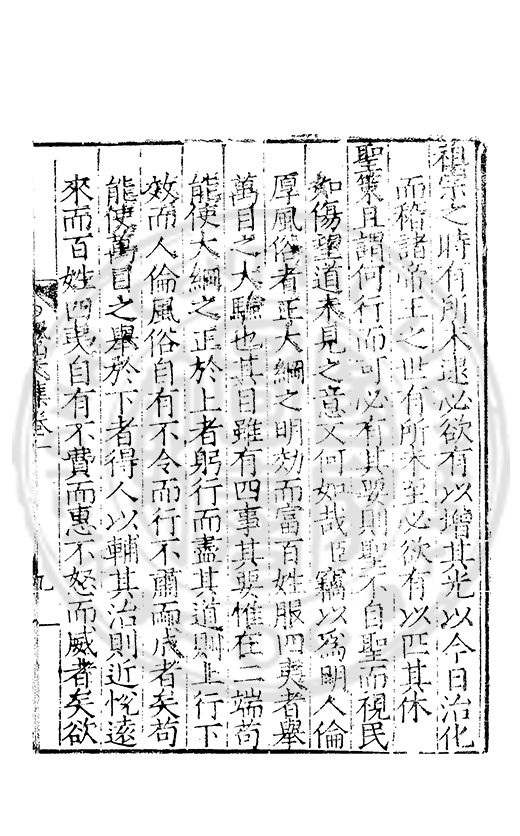 祖宗之時有所未逮必欲有以增其光以今日治化
而稽諸帝王之世有所未至必欲有以匹其休
聖策且謂何行而可必有其要則聖不自聖而視民
如傷望道未見之意又何如哉臣竊以爲明人倫
厚風俗者正大綱之明効而富百姓服四夷者舉
萬目之大驗也其目雖有四事其要惟在二端苟
能使大綱之正於上者躬行而盡其道則上行下
效而人倫風俗自有不令而行不肅而成者矣苟
能使萬目之舉於下者得人以輔其治則近悅遠
來而百姓四夷自有不費而惠不怒而威者矣欲
集卷一
九